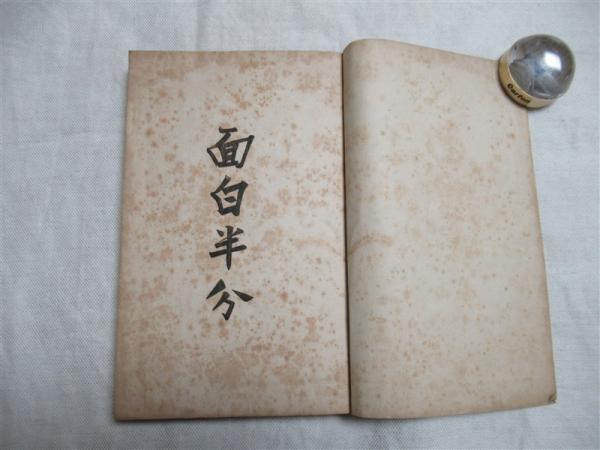 面白半分
Carton